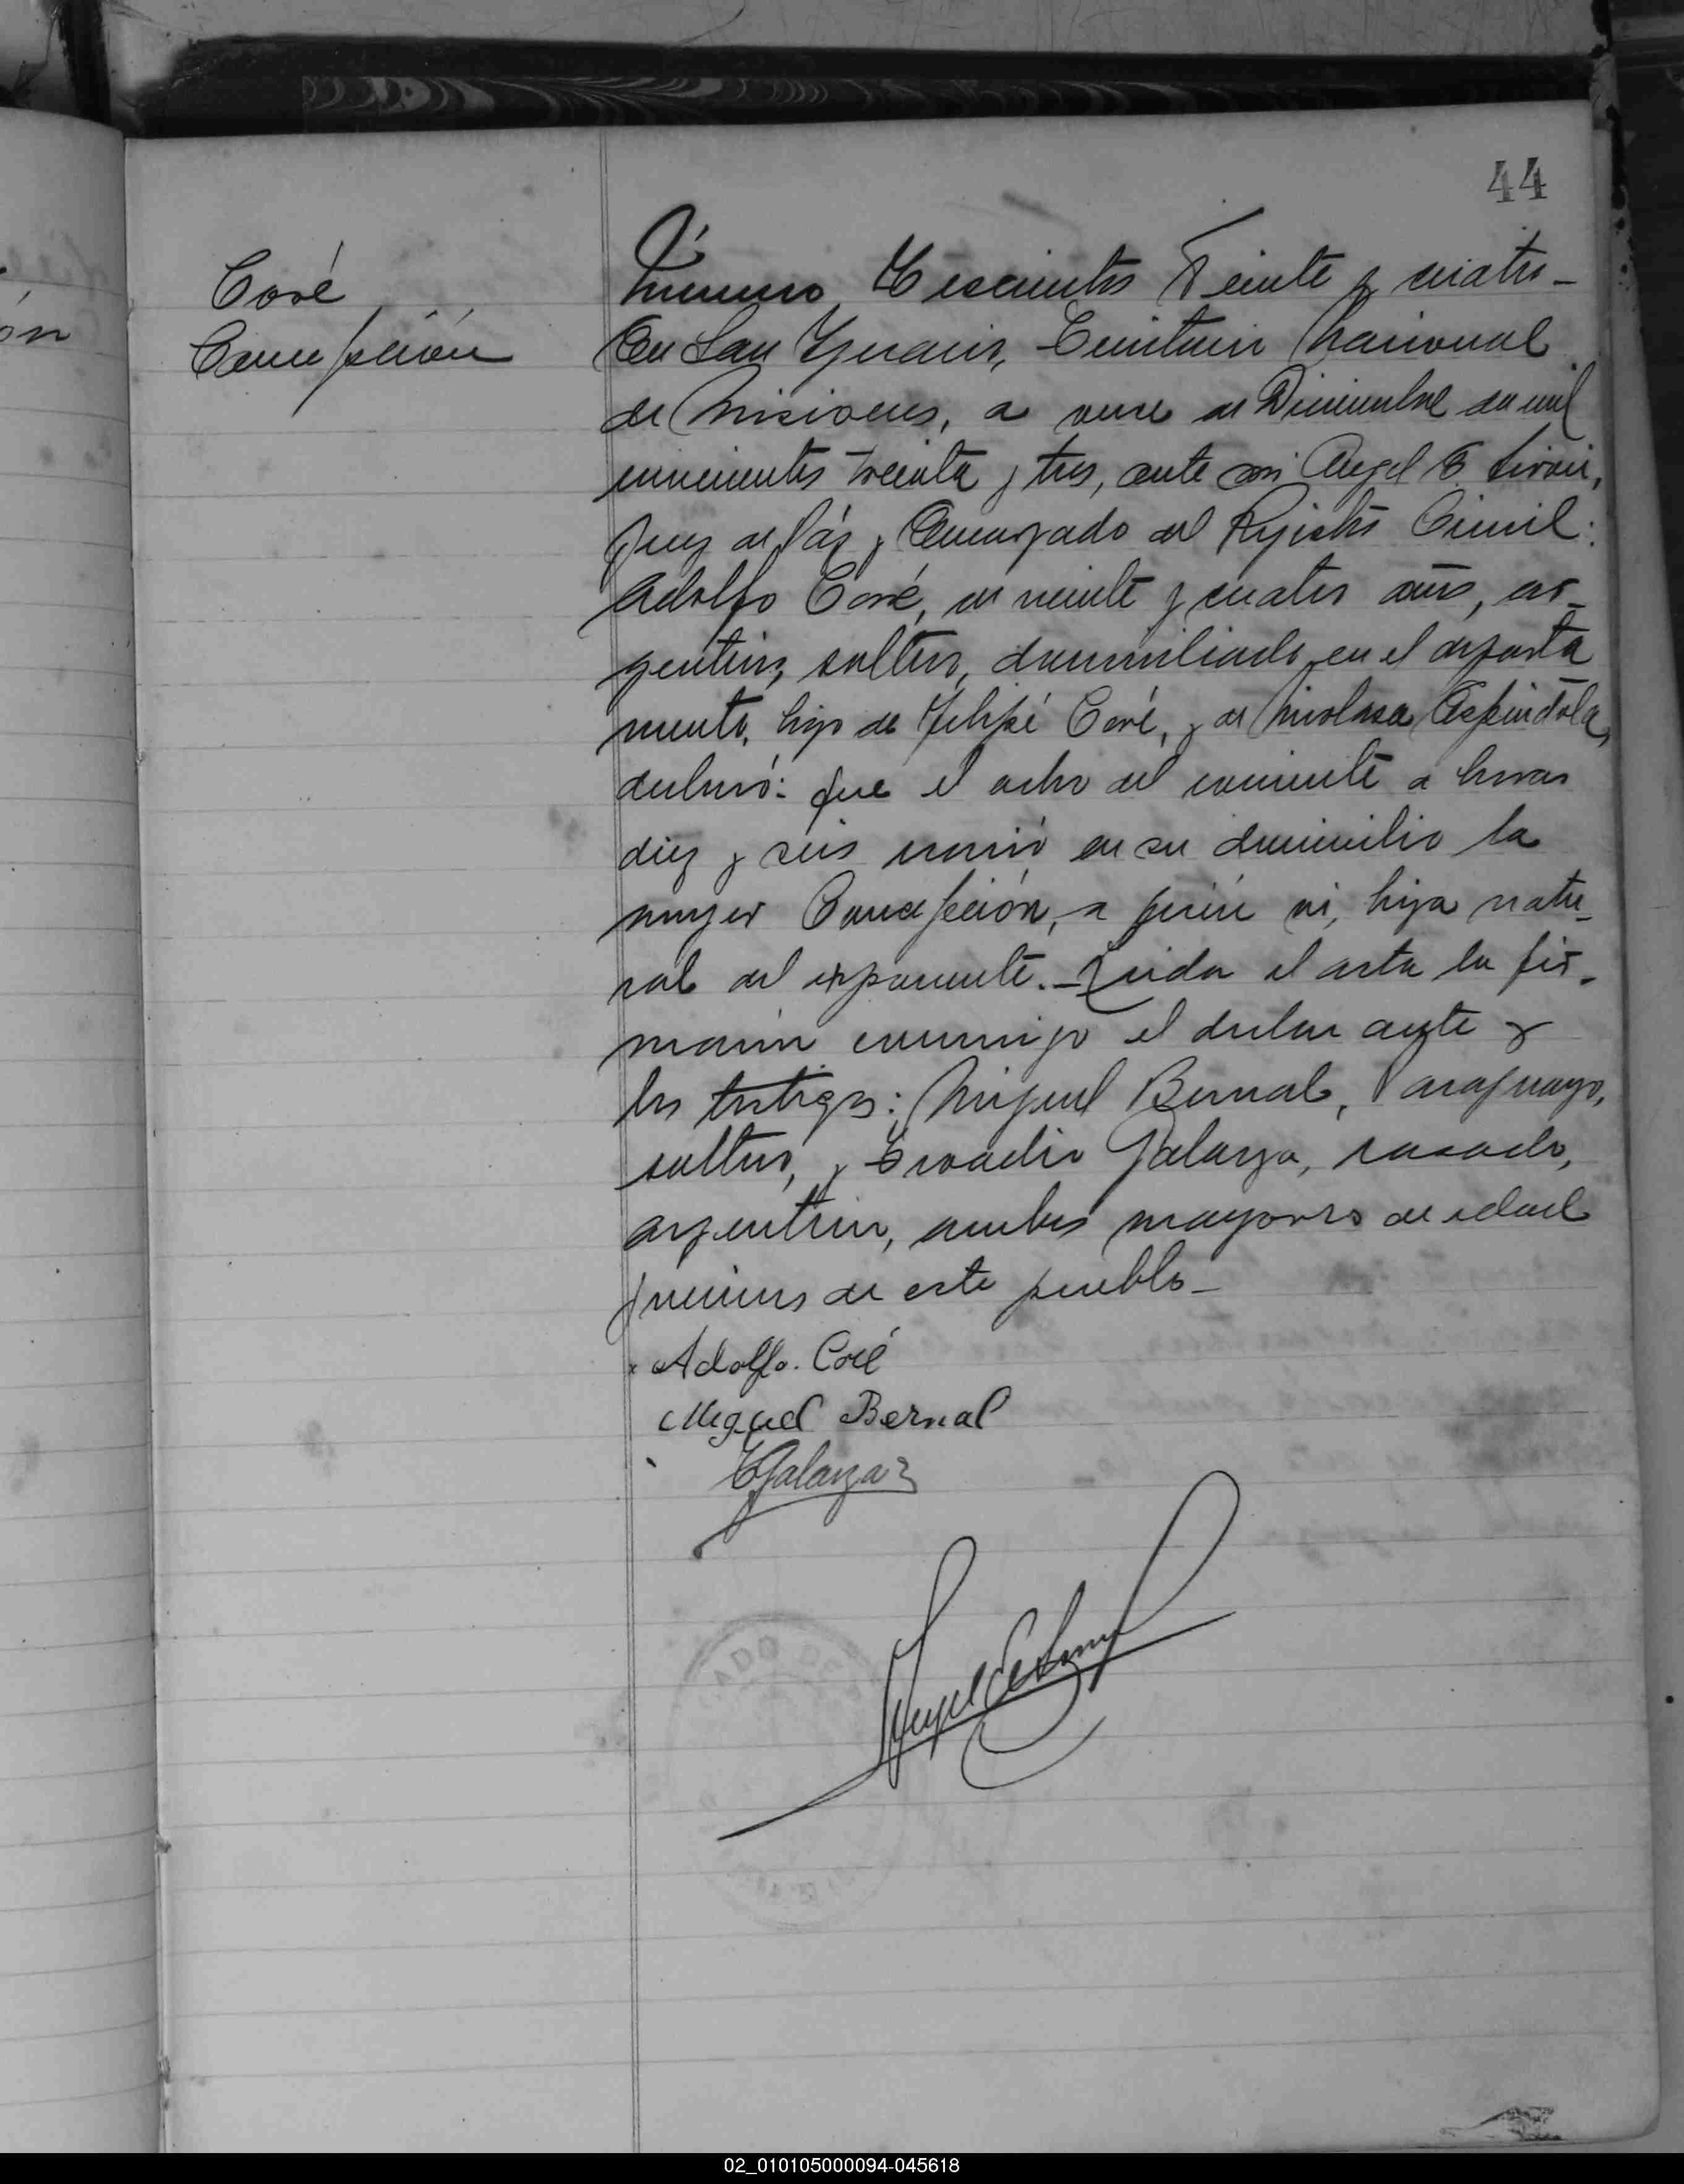 44
Coré
Concepción
Número Trescientos Veinte y cuatro_
En San Ygnacio, Territorio Nacional
de Misiones, a once de Diciembre de mil
novecientos treinta y tres, ante mi Angel E.
Juez de Páz y Encargado del Rejistro Civil:
Adolfo Coré, de veinte y cuatro años, ar_
gentino, soltero, domiciliado en el departa
mento, hijo de Felipé Coré, y de Nicolasa Espindola,
declaró: que el ocho del corriente a horas
diez y seis nació en su domicilio la
mujer Concepción, a quien ví, hija natu_
ral del exponente._ Leida el acta la fir_
maron conmigo el declarante y
los testigos: Miguel Bernal, Paraguayo,
soltero, y Eroadio Galarza, casado,
argentino, ambos mayores de edad
y vecinos de este pueblo_
Adolfo. Coré
Miguel Bernal
EGalarza
ADO DE
02_010105000094-045618
ón